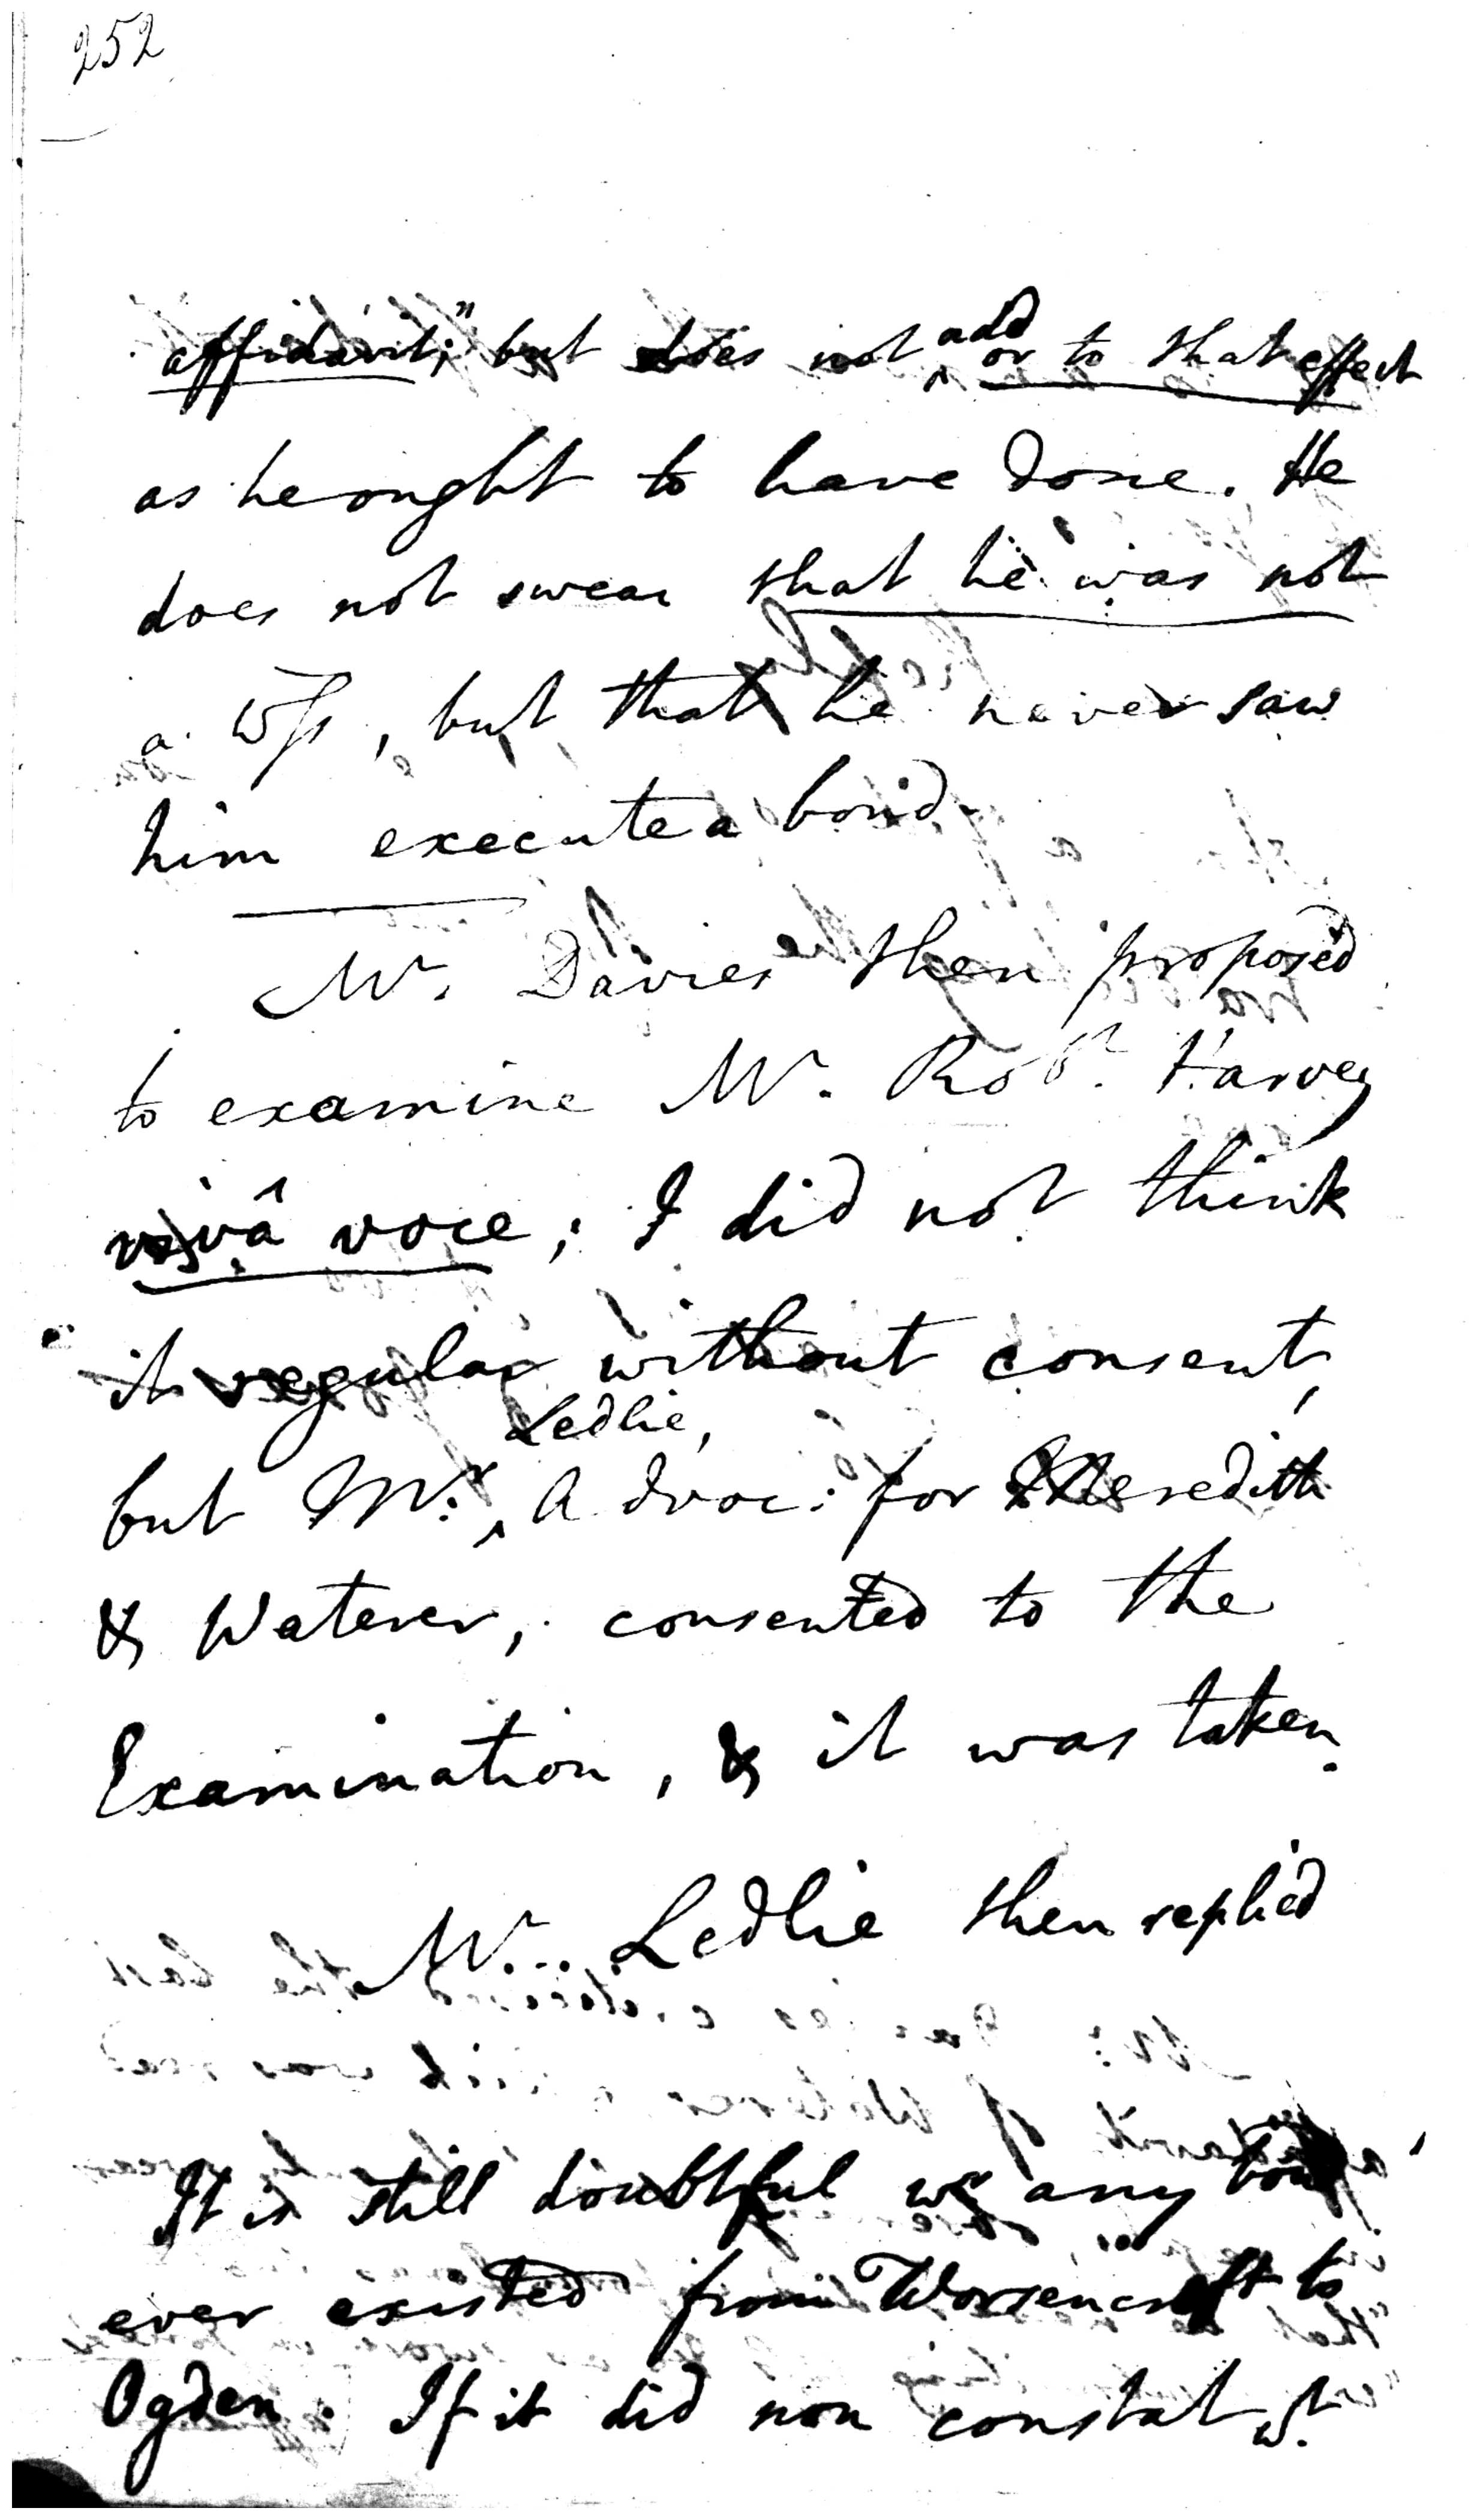 252
affidavit;" but does not add or to that effect
as he ought to have done. He
does not swear that he was not
a Wss, but that he never saw
him execute a bond.
Mr. Davies then propos'd
to examine Mr. Robt. Harvey
vivâ voce; I did not think
it regular without consent,
but Mr. Ledlie, Advoc: for Meredith
& Waterer, consented to the
Examination, & it was taken.
Mr. Ledlie then replied
It is still doubtful wr any bond
ever existed from Worsencroft to
Ogden. If it did non constat wt.